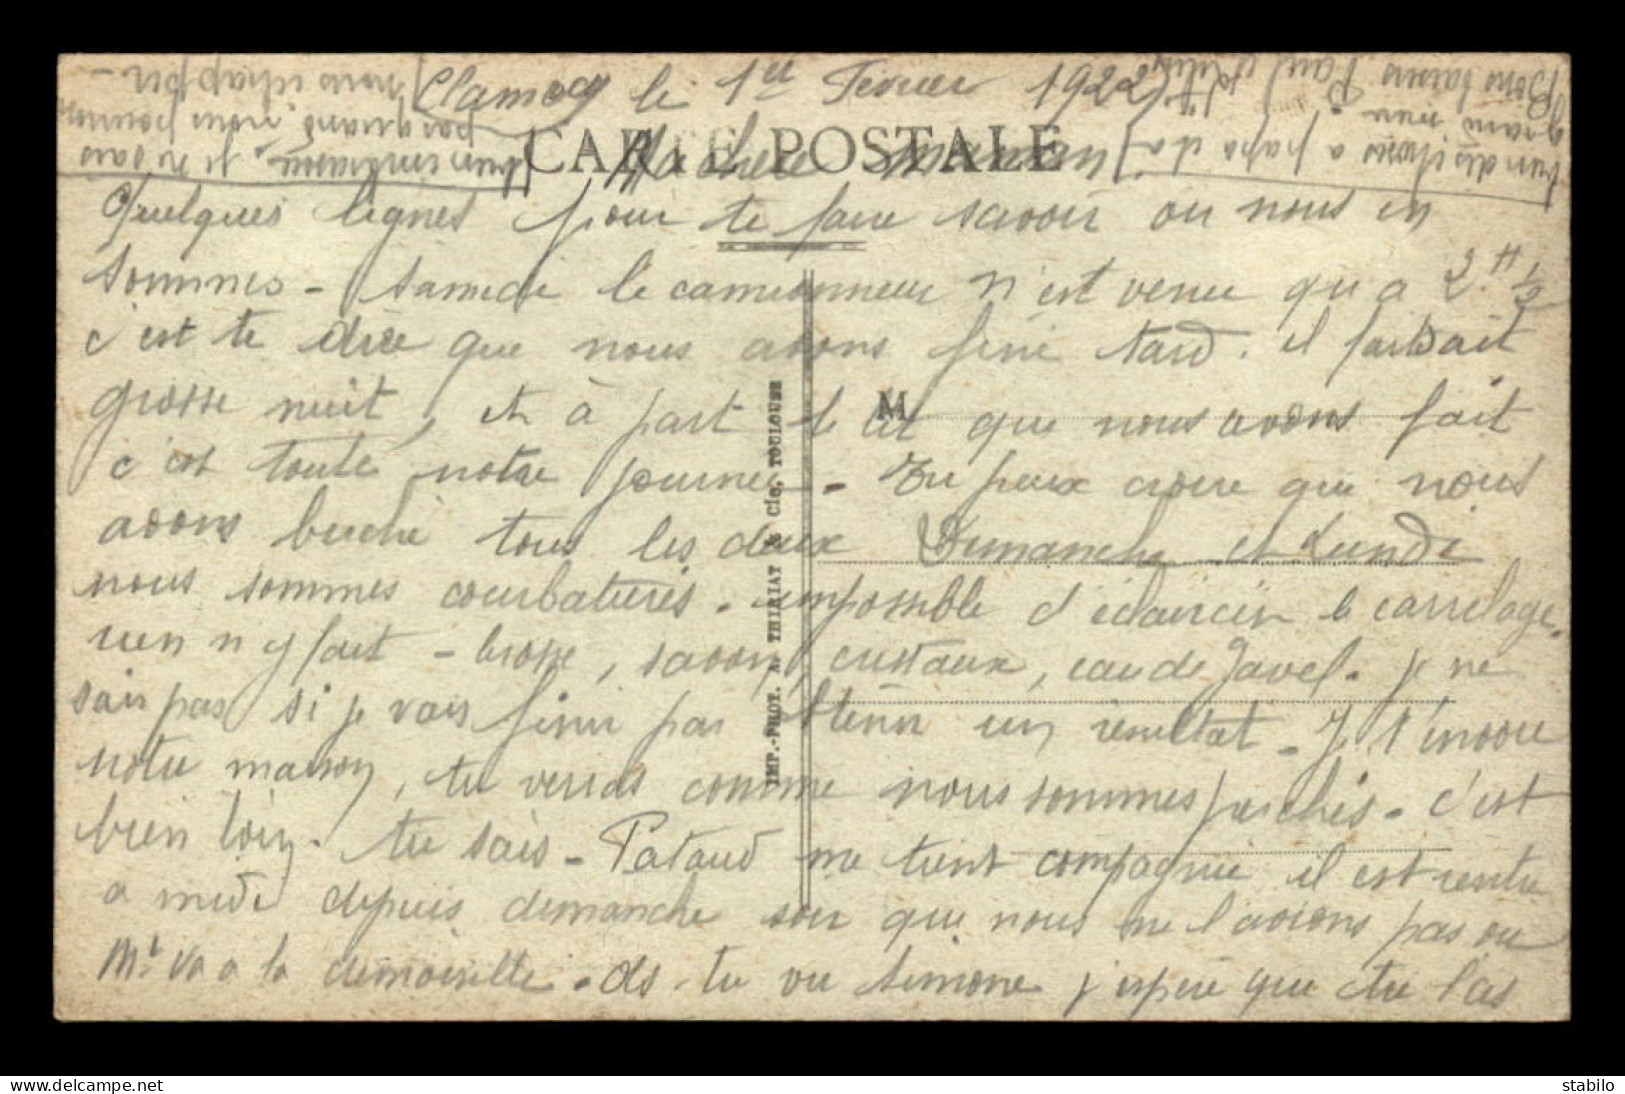 Clamecy le 1er Fevrier 1922
CARTE POSTALE
Ma chere maman
Quelques lignes pour te faire savoir ou nous en
sommes - Samedi le camionneur n'est venu qu'a 2 H 1/2
c'est te dire que nous avons fini tard. il faisait
grosse nuit, et à part le lit que nous avons fait
M
c'est toute notre journée - Tu peux croire que nous
avons buché tous les deux Dimanche et Lundi
nous sommes courbaturés. impossible d'éclaircir le carrelage.
rien n'y fait - brosse, savon, cristaux, eau de Javel. je ne
sais pas si je vais finir par obtenir un résultat - Je t'envoie
notre maison, tu verras comme nous sommes perchés. c'est
bien loin. tu sais - Pataud me tient compagnie il est rentré
a midi depuis dimanche soir que nous ne l'avions pas vu
Mr va a la demoiselle. As-tu vu Simone j'espère que tu l'as
bien embrassée. Je ne sais
pas quand nous pourrons
nous échapper -
bien des choses a papa et a
grand mère -
Bons baisers Paul
IMP.-PHOT. A. THIRIAT & Cie, TOULOUSE
stabilo